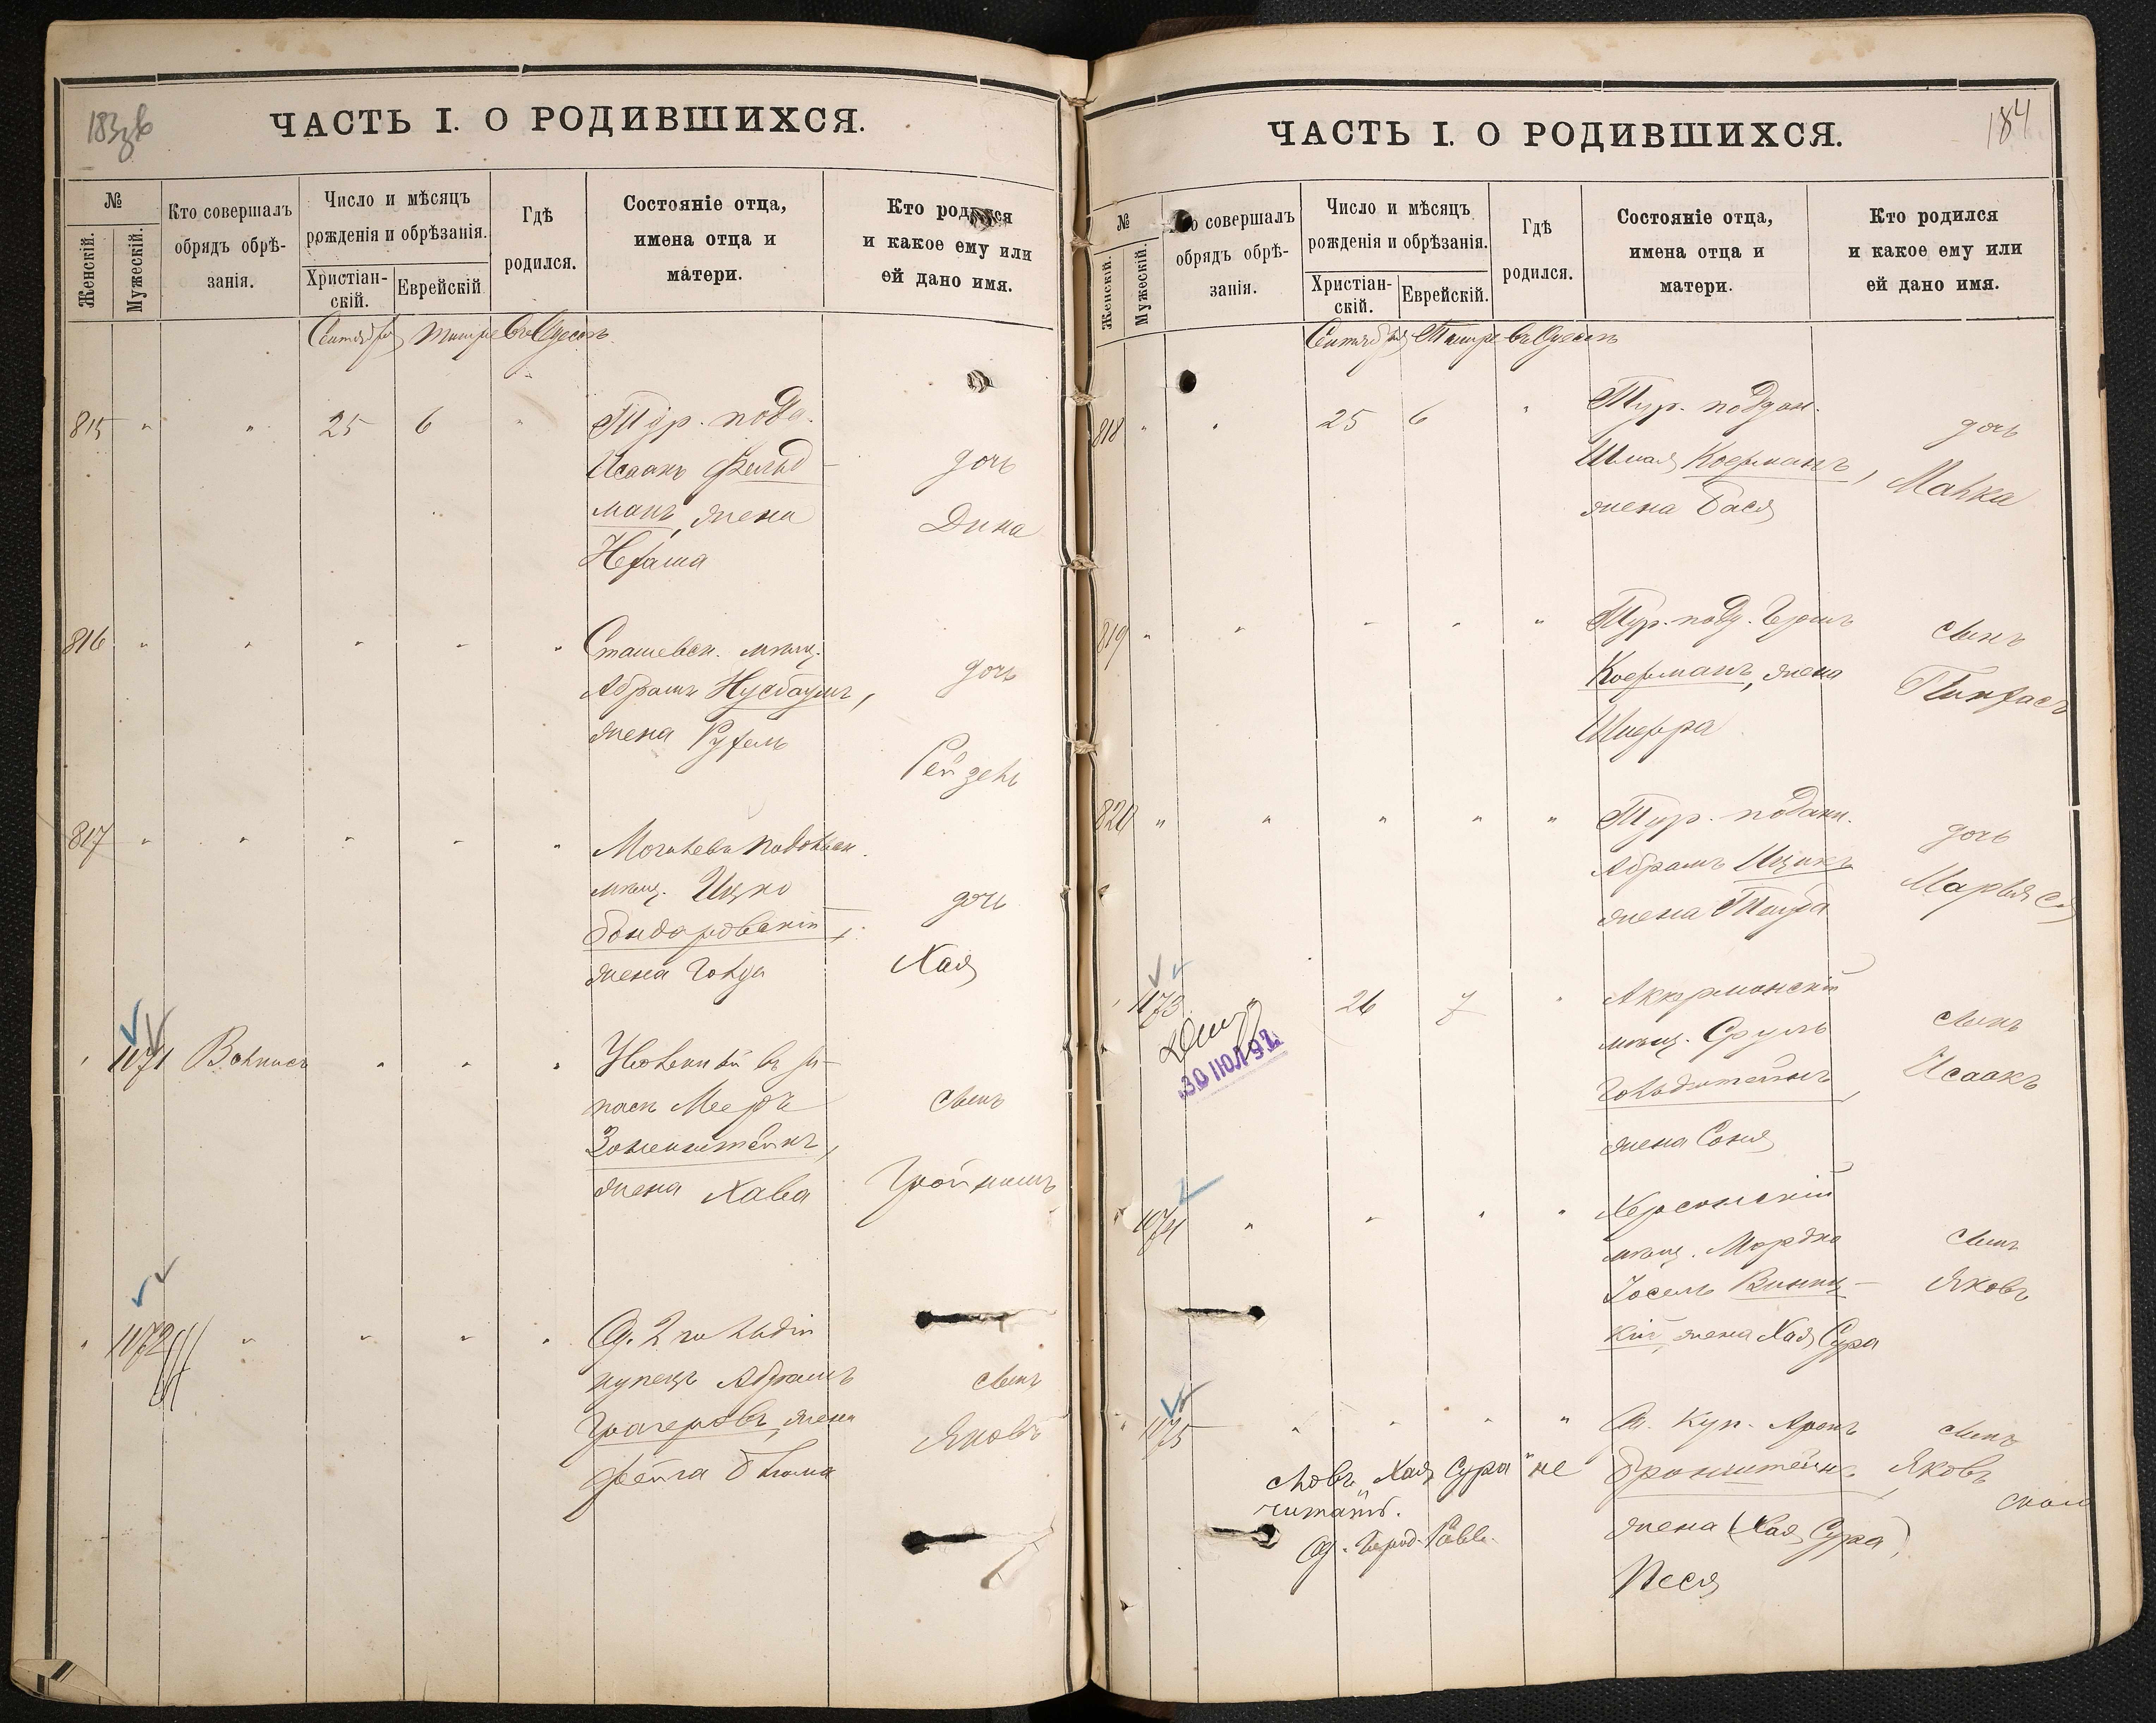 183об
ЧАСТЬ I. О РОДИВШИХСЯ.
№
Женскій.
Мужескій.
Кто совершалъ
обрядъ обрѣ-
занія.
Число и мѣсяцъ
рожденія и обрѣзанія.
Христіан-
скій.
Еврейскій
Гдѣ
родился.
Состояніе отца,
имена отца и
матери.
Кто родился
и какое ему или
ей дано имя.
Сентября Тишре въ Одессѣ
815 " " 25 6 " Тур. подд.
Исаакъ Фельд-
манъ, жена
Нехама
дочь
Дина
816 " " " " " Сташевск. мѣщ.
Абрамъ Нусбаумъ,
жена Рухель
дочь
Рейзель
817 " " " " " Могилевск. Подольск.
мѣщ. Ицко
Бондаровскій,
жена Голда
дочь
Хая
" 1071 " " "
запасн. Мееръ
Зоненштейнъ,
жена Хава
сынъ
" 1072 " " " " Од. 2 гильдіи
купецъ Абрамъ
жена
Фейга Блюма
сынъ
Яковъ
184
ЧАСТЬ I. О РОДИВШИХСЯ.
№
Женскій.
Мужескій.
Кто совершалъ
обрядъ обрѣ-
занія.
Число и мѣсяцъ
рожденія и обрѣзанія.
Христіан-
скій.
Еврейскій.
Гдѣ
родился.
Состояніе отца,
имена отца и
матери.
Кто родился
и какое ему или
ей дано имя.
Сентября Тишре въ Одессѣ
818 " " 25 6 " Тур. поддан.
Шмая Коефманъ,
жена Бася
дочь
Манка
819 " " " " " Тур. подд. Гершъ
Коефманъ, жена
Шифра
сынъ
Пинхасъ
820 " " " " " Тур. поддан.
Абрамъ Ицикъ
жена
дочь
Марьяся
" 1073 26 7 " Аккерманскій
мѣщ. Сруль
Гольдштейнъ,
жена Соня
сынъ
Исаакъ
30 ИЮЛ 92
" 1074 " " " " Херсонскій
мѣщ. Мордко
Іосель Винниц-
кій, жена Хая Сура
сынъ
Яковъ
" 1075 " " " " Од. Куп. Аронъ
Бронштейнъ,
жена (Хая Сура)
Песя
сынъ
Яковъ
словъ „Хая Сура" не
читать.
Од. Город. Равв.